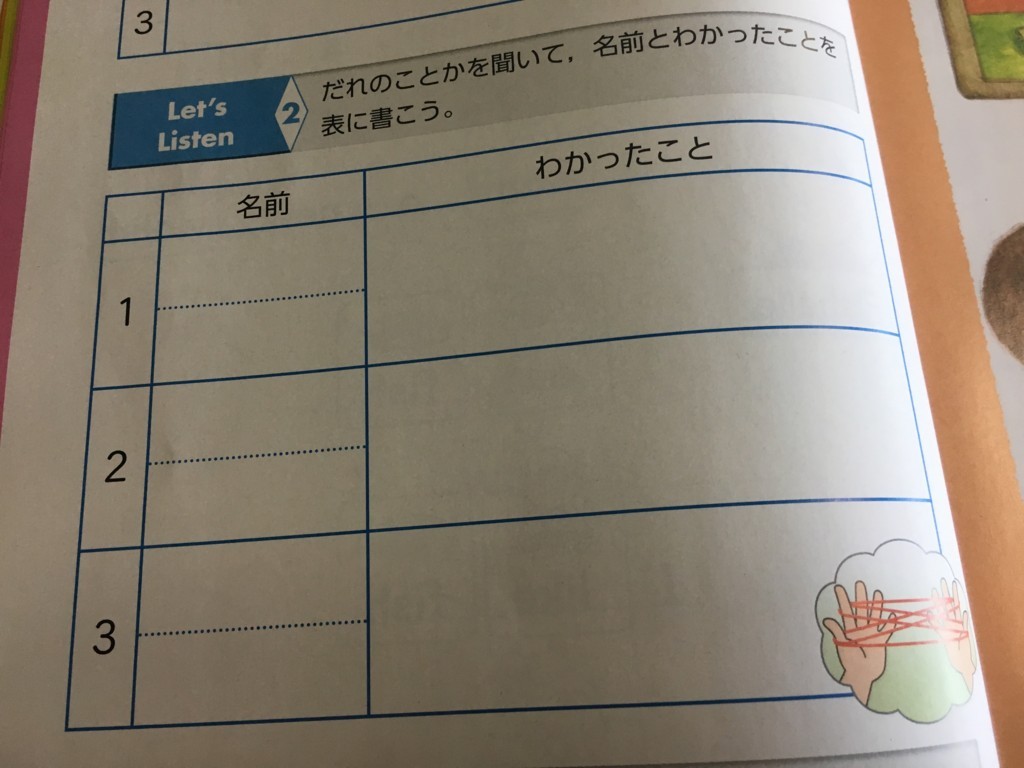 3
Let's
Listen
2
だれのことかを聞いて，名前とわかったことを
表に書こう。
名前
わかったこと
1
2
3